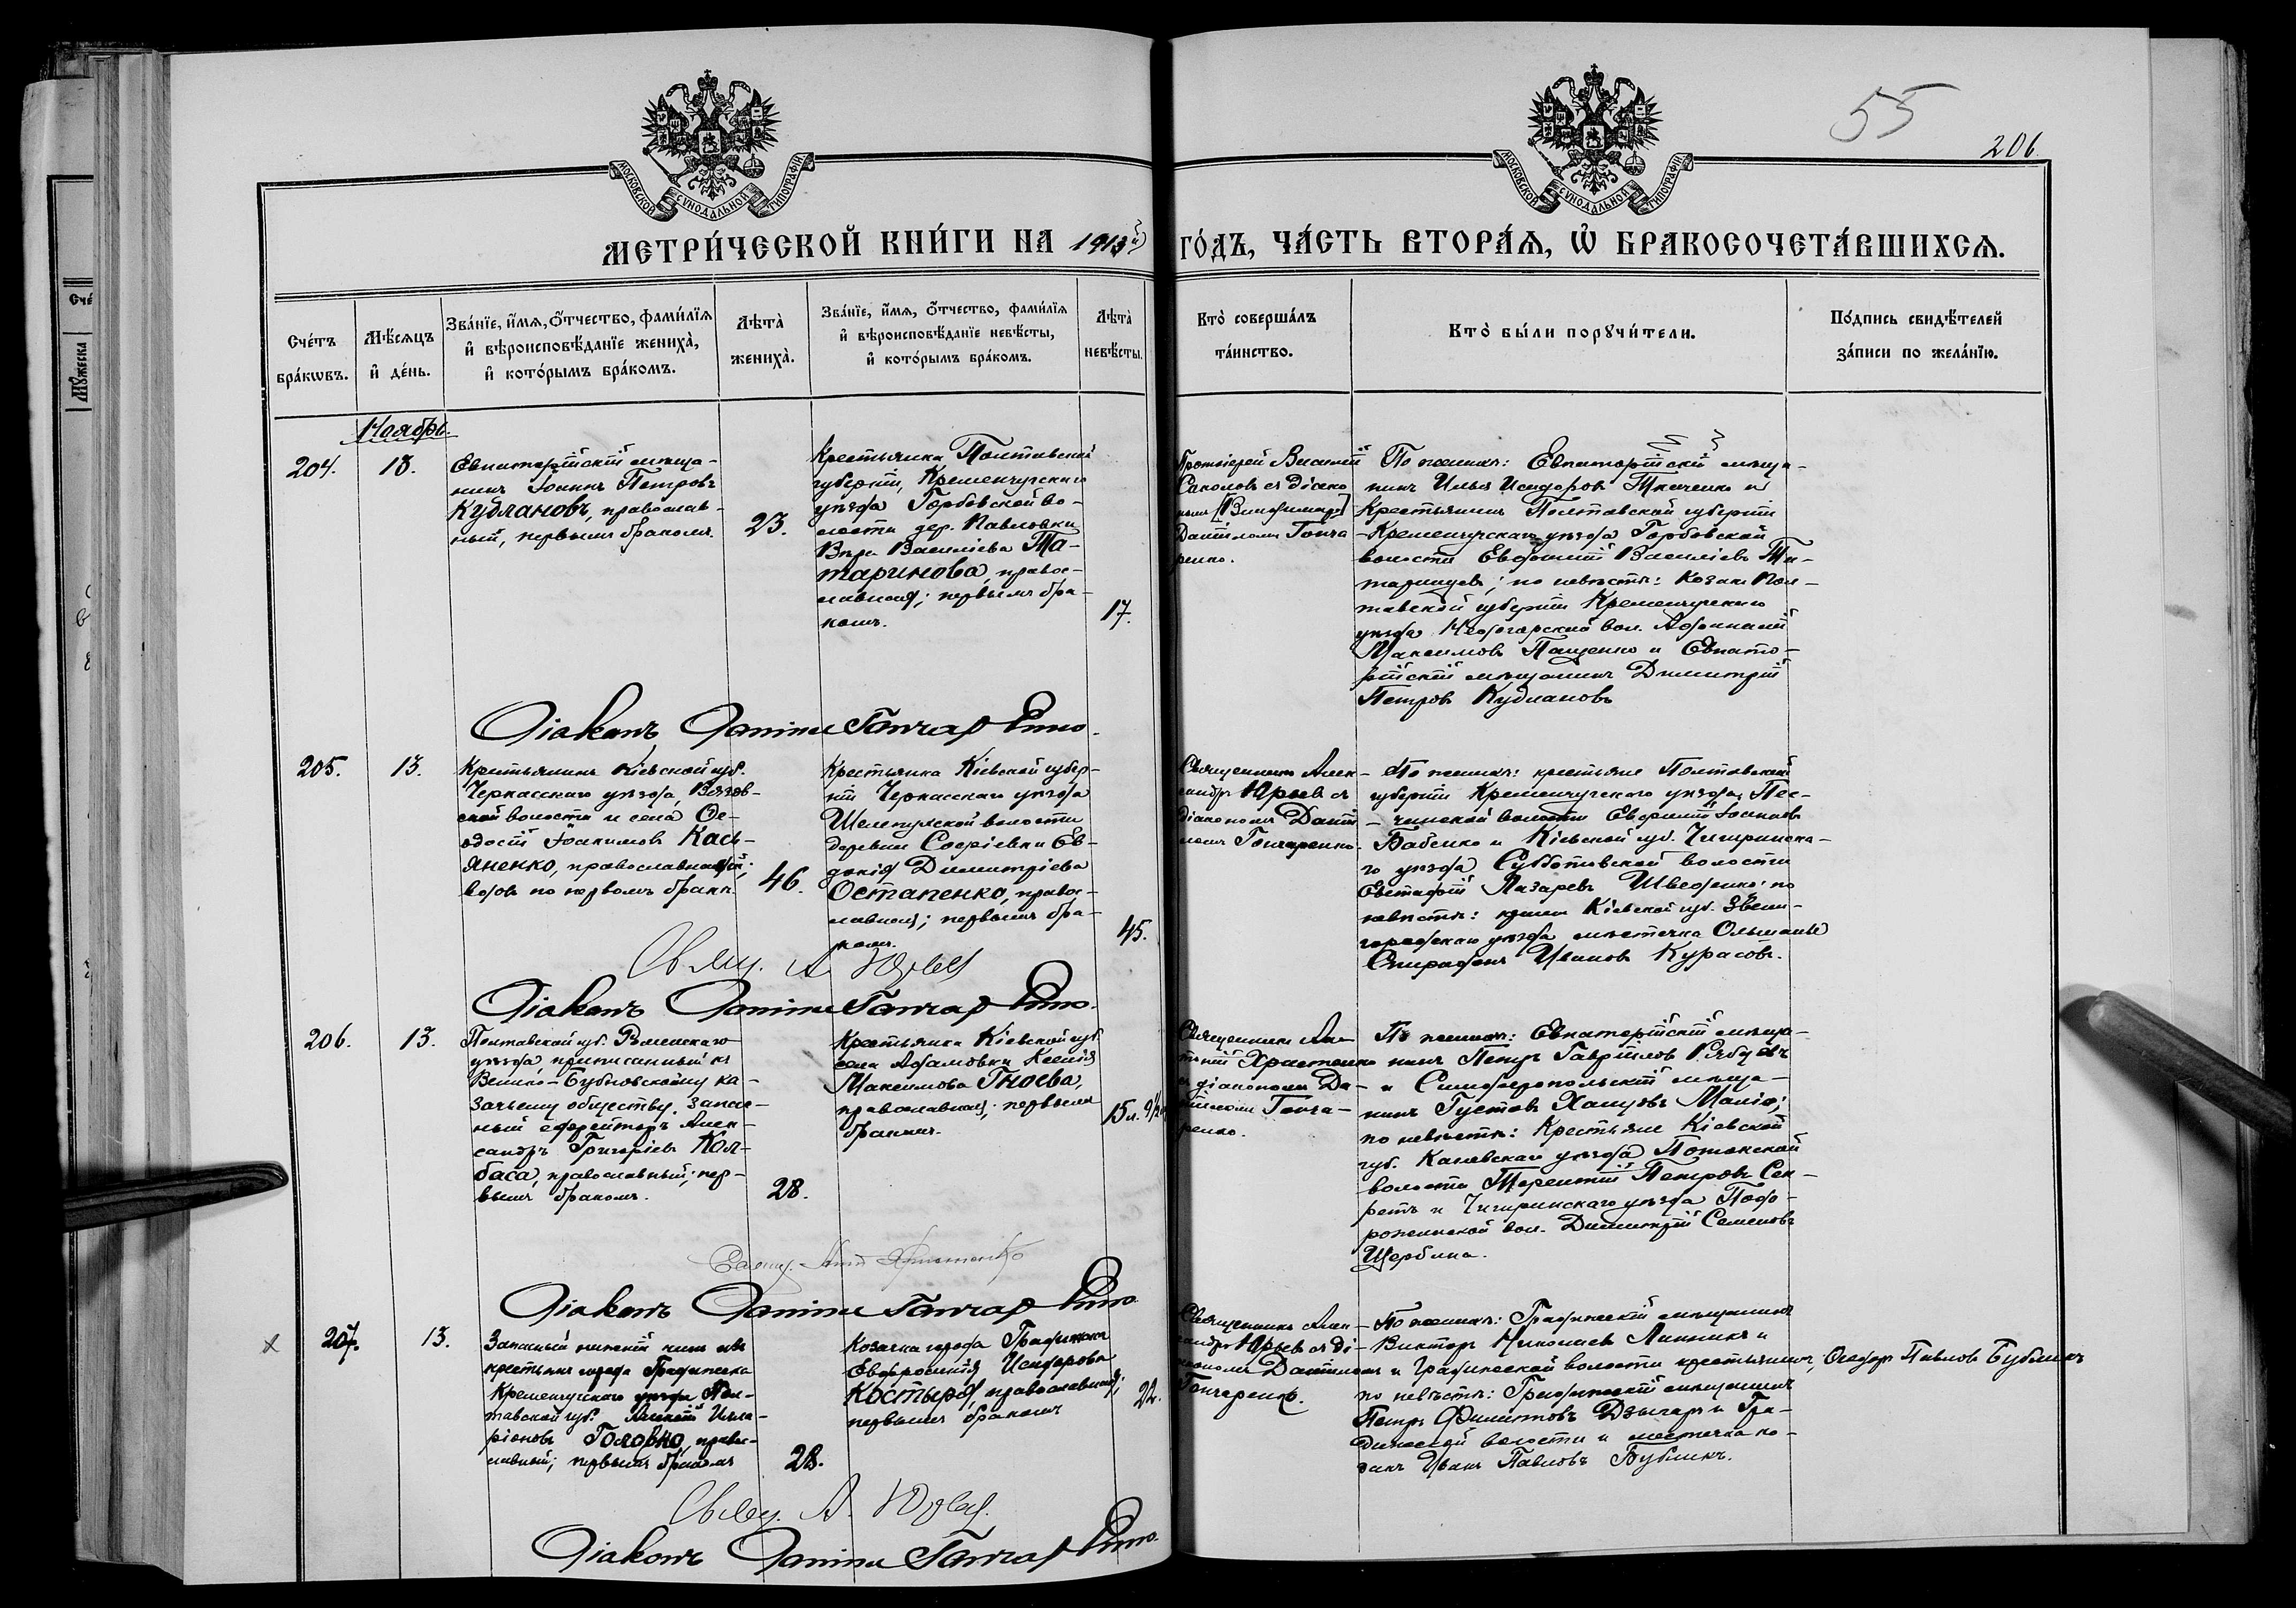 55
206.
МОСКОВСКОЙ СѴНОДАЛЬНОЙ ТИПОГРАФІИ
МОСКОВСКОЙ СѴНОДАЛЬНОЙ ТИПОГРАФІИ
МЕТРИ́ЧЕСКОЙ КНИ́ГИ НА 1913й ГО́ДЪ, ЧА́СТЬ ВТОРА́Ѧ, Ѡ҆ БРАКОСОЧЕТА́ВШИХСѦ.
Сче́тъ бра́кѡвъ.
Мѣ́сѧцъ и҆ де́нь.
Зва́нїе, и҆́мѧ, ѻ҆́тчество, фами́лїѧ и҆ вѣроисповѣ́данїе жениха̀, и҆ кото́рымъ бра́комъ.
Лѣта̀ жениха̀.
Зва́нїе, и҆́мѧ, ѻ҆́тчество, фами́лїѧ и҆ вѣроисповѣ́данїе невѣ́сты, и҆ кото́рымъ бра́комъ.
Лѣта̀ невѣ́сты.
Кто̀ соверша́лъ та́инство.
Кто̀ бы́ли порꙋчи́тели.
По́дпись свидѣ́телей за́писи по жела́нїю.
Ноябрь.
204.
13.
Евпаторійскій мѣща-
нинъ Іоаннъ Петровъ
Кудлановъ, православ-
ный, первымъ бракомъ.
23.
Крестьянка Полтавской
губерніи, Кременчугскаго
уѣзда Горбовской во-
лости дер. Павловки
Вѣра Василіева Та-
таринова, правос-
лавная; первымъ бра-
комъ.
17.
Протоіерей Василій
Соколовъ съ діако
номъ
Даніиломъ Гонча
ренко.
По женихѣ: Евпаторійскій мѣща-
нинъ Илья Исидоровъ Ткаченко и
Крестьянинъ Полтавской губерніи
Кременчугскаго уѣзда Горбовской
волости Евфимій Василіевъ Та-
таринцевъ; по невѣстѣ: Козакъ Пол-
тавской губерніи Кременчугскаго
уѣзда вол. Афанасій
Максимовъ Пащенко и Евпато-
рійскій мѣщанинъ Димитрій
Петровъ Кудлановъ
Діаконъ Даніилъ Гончаренко.
205.
13.
Крестьянинъ Кіевской губ.
Черкасскаго уѣзда, Вязов-
ской волости и села Ѳе-
одосій Іоакимовъ Кась-
яненко, православный;
вдовъ по первомъ бракѣ.
46.
Крестьянка Кіевской губер-
ніи Черкасскаго уѣзда
волости
деревни Софіевки Ев-
докія Димитріева
Остапенко, правос-
лавная; первымъ бра-
комъ.
45.
Священникъ Алек-
сандръ Юрьевъ съ
діакономъ Даніи-
ломъ Гончаренко.
По женихѣ: крестьяне Полтавской
губерніи Кременчугскаго уѣзда, Пес-
чанской волости Евфимій Іоанновъ
Бабенко и Кіевской губ. Чигиринска-
го уѣзда Субботовской волости
Евстафій Лазаревъ Шведенко; по
невѣстѣ: Кіевской губ. Звени-
городскаго уѣзда мѣстечка Ольшаны
Спиридонъ Ивановъ Курасовъ.
Свящ. А. Юрьевъ
Діаконъ Даніилъ Гончаренко.
206.
13.
Полтавской губ. Роменскаго
уѣзда, приписанный къ
Велико-Бубновскому ка-
зачьему обществу, запас-
ный ефрейторъ Алек-
сандръ Григоріевъ Кол-
баса, православный; пер-
вымъ бракомъ.
28.
Крестьянка Кіевской губ.
села Адамовки Ксенія
Максимова Гноева,
православная; первымъ
бракомъ.
15л. 9½
Священникъ Ан-
тоній Христенко
съ діакономъ Да-
ніиломъ Гонча-
ренко.
По женихѣ: Евпаторійскій мѣща-
нинъ Петръ Гавріиловъ Рябцевъ
и Симферопольскій мѣща-
нинъ Густавъ
по невѣстѣ: Крестьяне Кіевской
губ. Каневскаго уѣзда Потокской
волости Терентій Петровъ Сек-
ретъ и Чигиринскаго уѣзда Подо-
рожнянской вол. Димитрій Семеновъ
Щербина.
Свящ. Ант. Христенко
Діаконъ Даніилъ Гончаренко
207.
13.
Запасный нижній чинъ изъ
крестьянъ города Градижска
Кременчугскаго уѣзда Пол-
тавской губ. Алексій Илла-
ріоновъ Головко, правос-
лавный; первымъ бракомъ
28.
Козачка города Градижска
Евфросинія Исидорова
Костыря, православная;
первымъ бракомъ
22.
Священникъ Алек-
сандръ Юрьевъ съ ді-
акономъ Даніиломъ
Гончаренко.
По женихѣ: Градижскій мѣщанинъ
Викторъ Николаевъ Линникъ и
Градижской волости крестьянинъ Ѳеодоръ Павловъ Бубликъ
по невѣстѣ: Градижскій мѣщанинъ
Петръ Филипповъ Дзычаръ и Гра-
дижской волости и мѣстечка ко-
закъ Иванъ Павловъ Бубликъ.
Свящ. А. Юрьевъ.
Діаконъ Даніилъ Гончаренко.